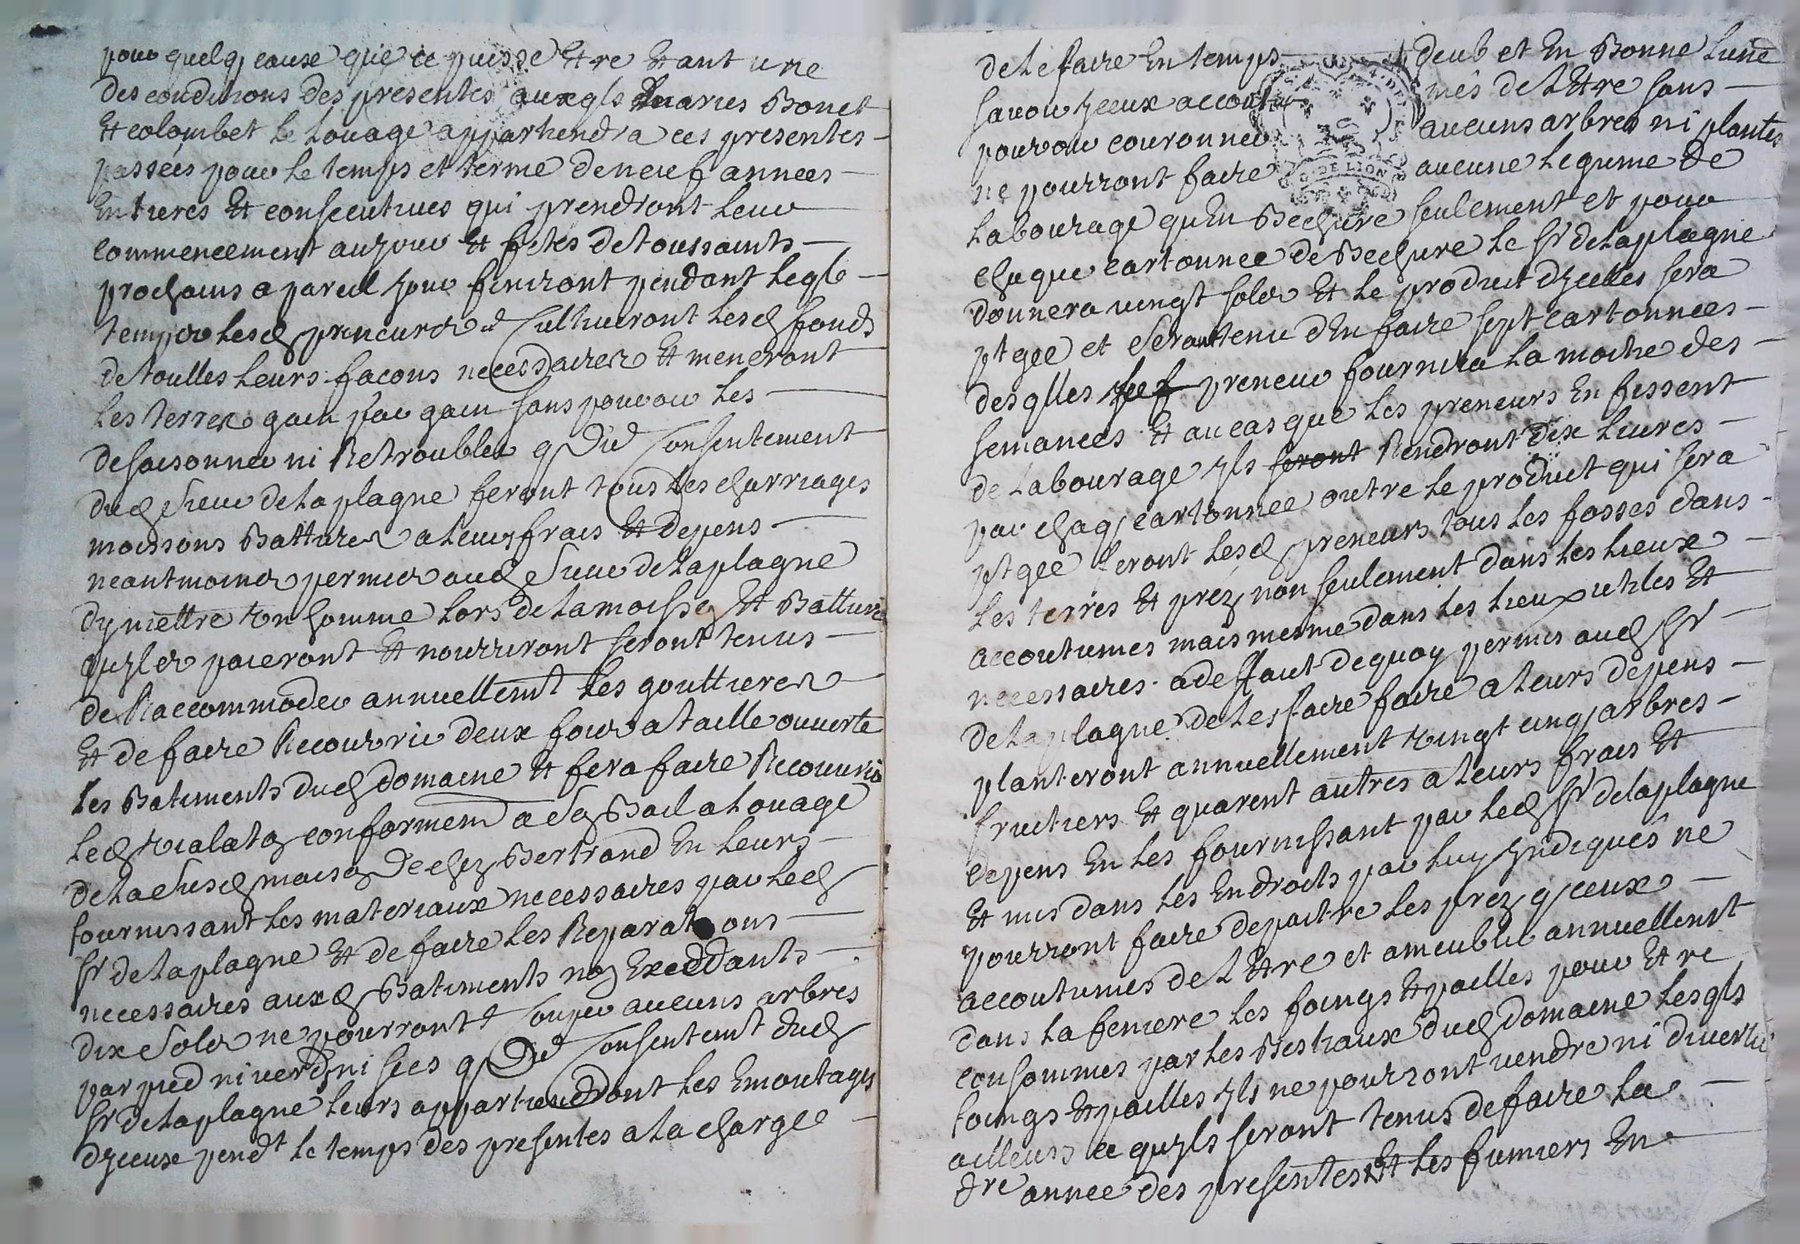 pour quelq cause que ce puisse Etre Etant une
des conditions des presentes auxqls Maries Bonet
Et colombet le Louage appartiendra ces presentes
passées pour le temps et terme de neuf annees
Entieres Et consecutives qui prendront leur
commencement au jour Et fetes de toussaints
prochains a pareil jour finiront pendant leql
temps lesd preneurs Cultiveront lesd fonds
de touttes leurs facons necessaires Et meneront
les terres gain par gain sans pouvoir les
desaisonner ni Retroubler q Du Consentement
dud Sieur de laplagne feront tous les charriages
moissons Battures a leurs frais Et depens
neantmoins permis aud Sieur de laplagne
dy mettre un homme lors de la moisson Et Batture
quyls paieront Et nourriront seront tenus
de Raccommoder annuellemt les gouttieres
Et de faire Recouvrir deux fois a taille ouverte
les Batiments dud domaine Et fera faire Recouvrir
led conformemt a Son Bail a Louage
de la Susd maison De chez Bertrand En leurs
fournissant les materiaux necessaires par led
Sr de laplagne Et de faire les Reparations
necessaires auxd Batiments non Exceddants
dix Sols ne pourront Couper aucuns arbres
par pied ni verds ni secs q Du Consentemt dud
Sr de laplagne leurs appartiendront les Emoutages
dyceux pendt le temps des presentes a la charge
de le faire En temps deub et En Bonne Lune
savoir yceux accoutumés de L Etre sans
pouvoir couronner aucuns arbres ni plantes
ne pourront faire aucune legume de
Labourage qu En Bechure seulement et pour
chaque cartonnee de Bechure le Sr de laplagne
donnera vingt sols Et le produit dycelles sera
ptgee et Seront tenu d En faire sept cartonnees
desqlles preneur fournira la moitie des
semances Et au cas que les preneurs En fissent
de Labourage yls seront Rendront dix livres
par chaq cartonnee outre le produit qui sera
ptgee feront lesd preneurs tous les fosses dans
les terres Et prez non seulement dans les lieux
accoutumes mais mesme dans les lieux utiles Et
necessaires a deffaut de quoy permis aud Sr
de laplagne de les faire faire a leurs depens
planteront annuellement vingt cinq arbres
fruitiers Et quarent autres a leurs frais Et
depens En les fournissant par led Sr delaplagne
Et mis dans les Endroits par luy yndiqués ne
pourront faire depaitre les prez q yceux
accoutumes de L Etre et ameublir annuellemt
dans la feniere les foings Et pailles pour Et re
consommes par les Bestiaux dud domaine lesqls
foings Et pailles yls ne pourront vendre ni divertir
ailleurs ce quyls seront tenus de faire la
dre annee des presentes Et les fumiers En